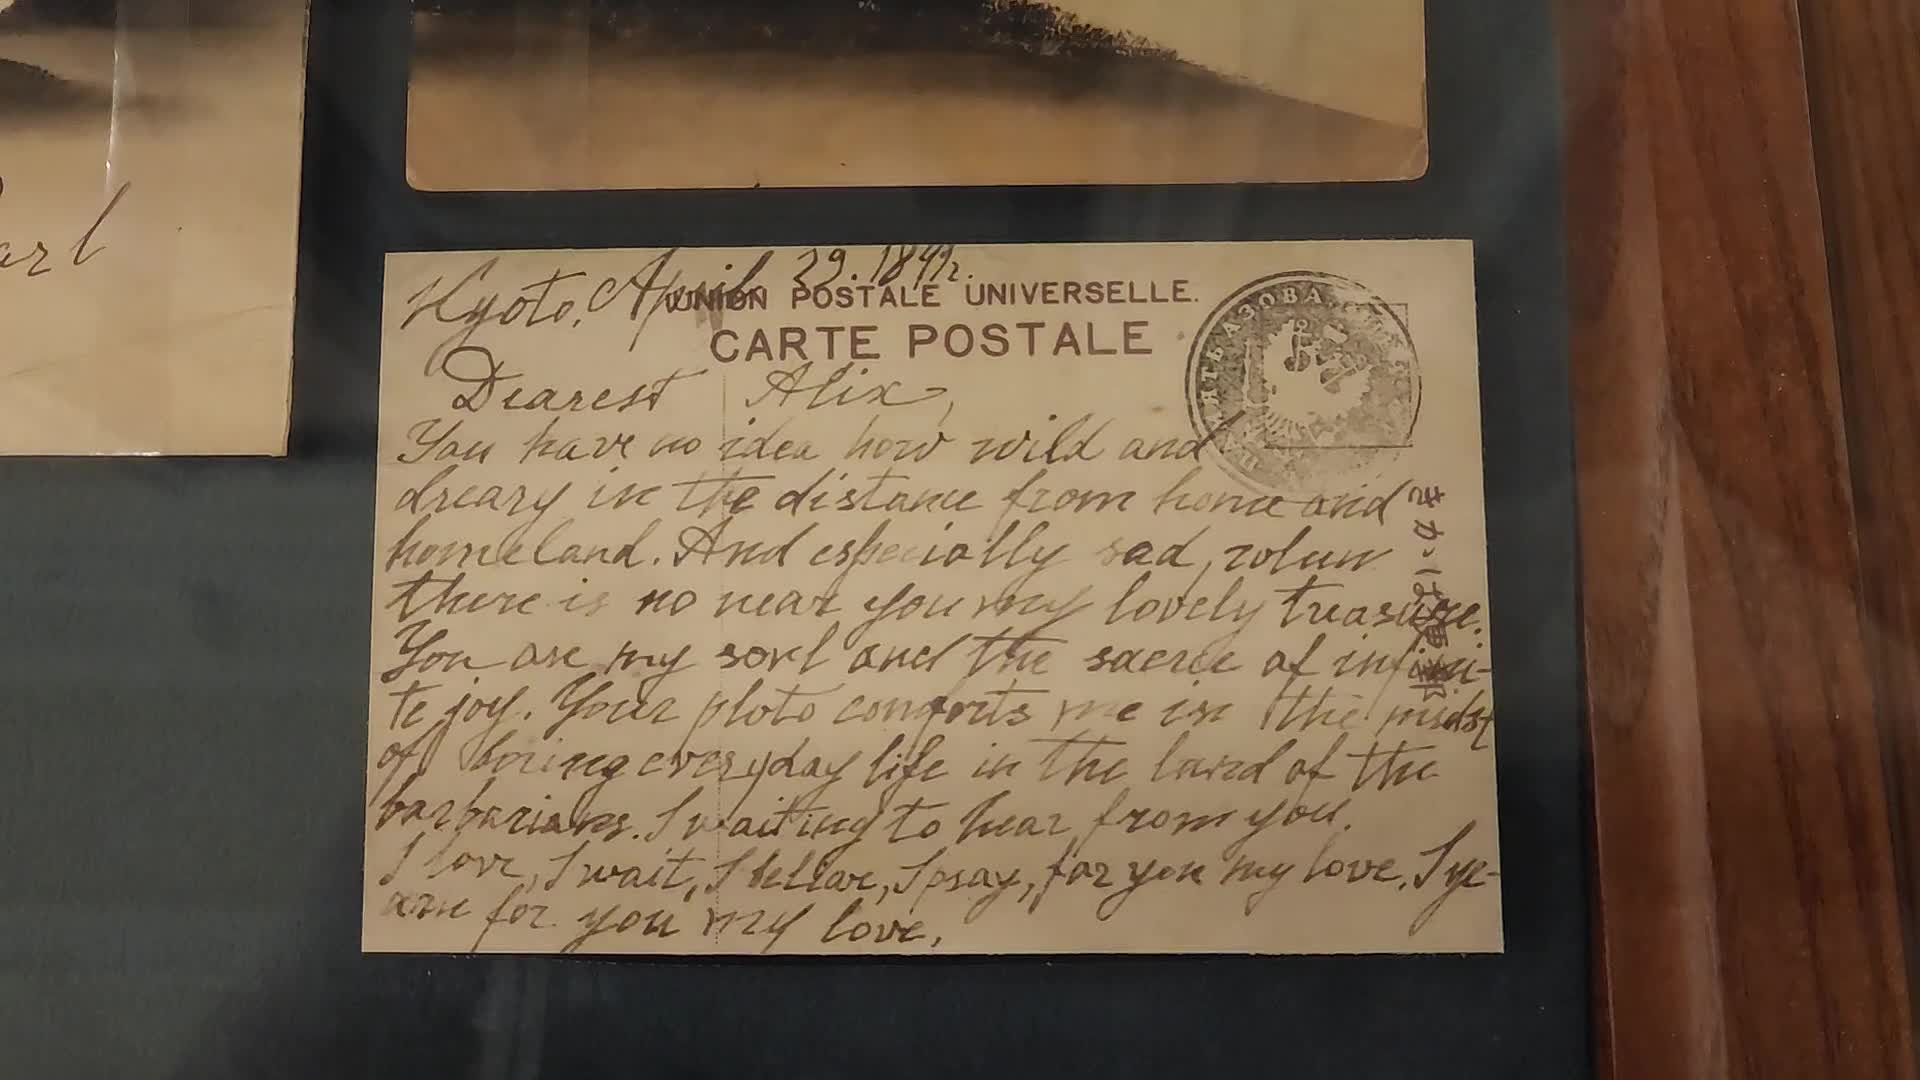 arl
Kyoto, April 29. 1891г.
UNION POSTALE UNIVERSELLE.
CARTE POSTALE
Dearest Alix,
You have no idea how wild and
dreary in the distance from home and
homeland. And especially sad, when
there is no near you my lovely treasure.
You are my soul and the sacree of infini-
te joy. Your ploto comforts me in the midst
of boring everyday life in the land of the
barbarians. I waiting to hear from you.
I love, I wait, I beliave, I pray, for you my love. I ye-
arn for you my love.